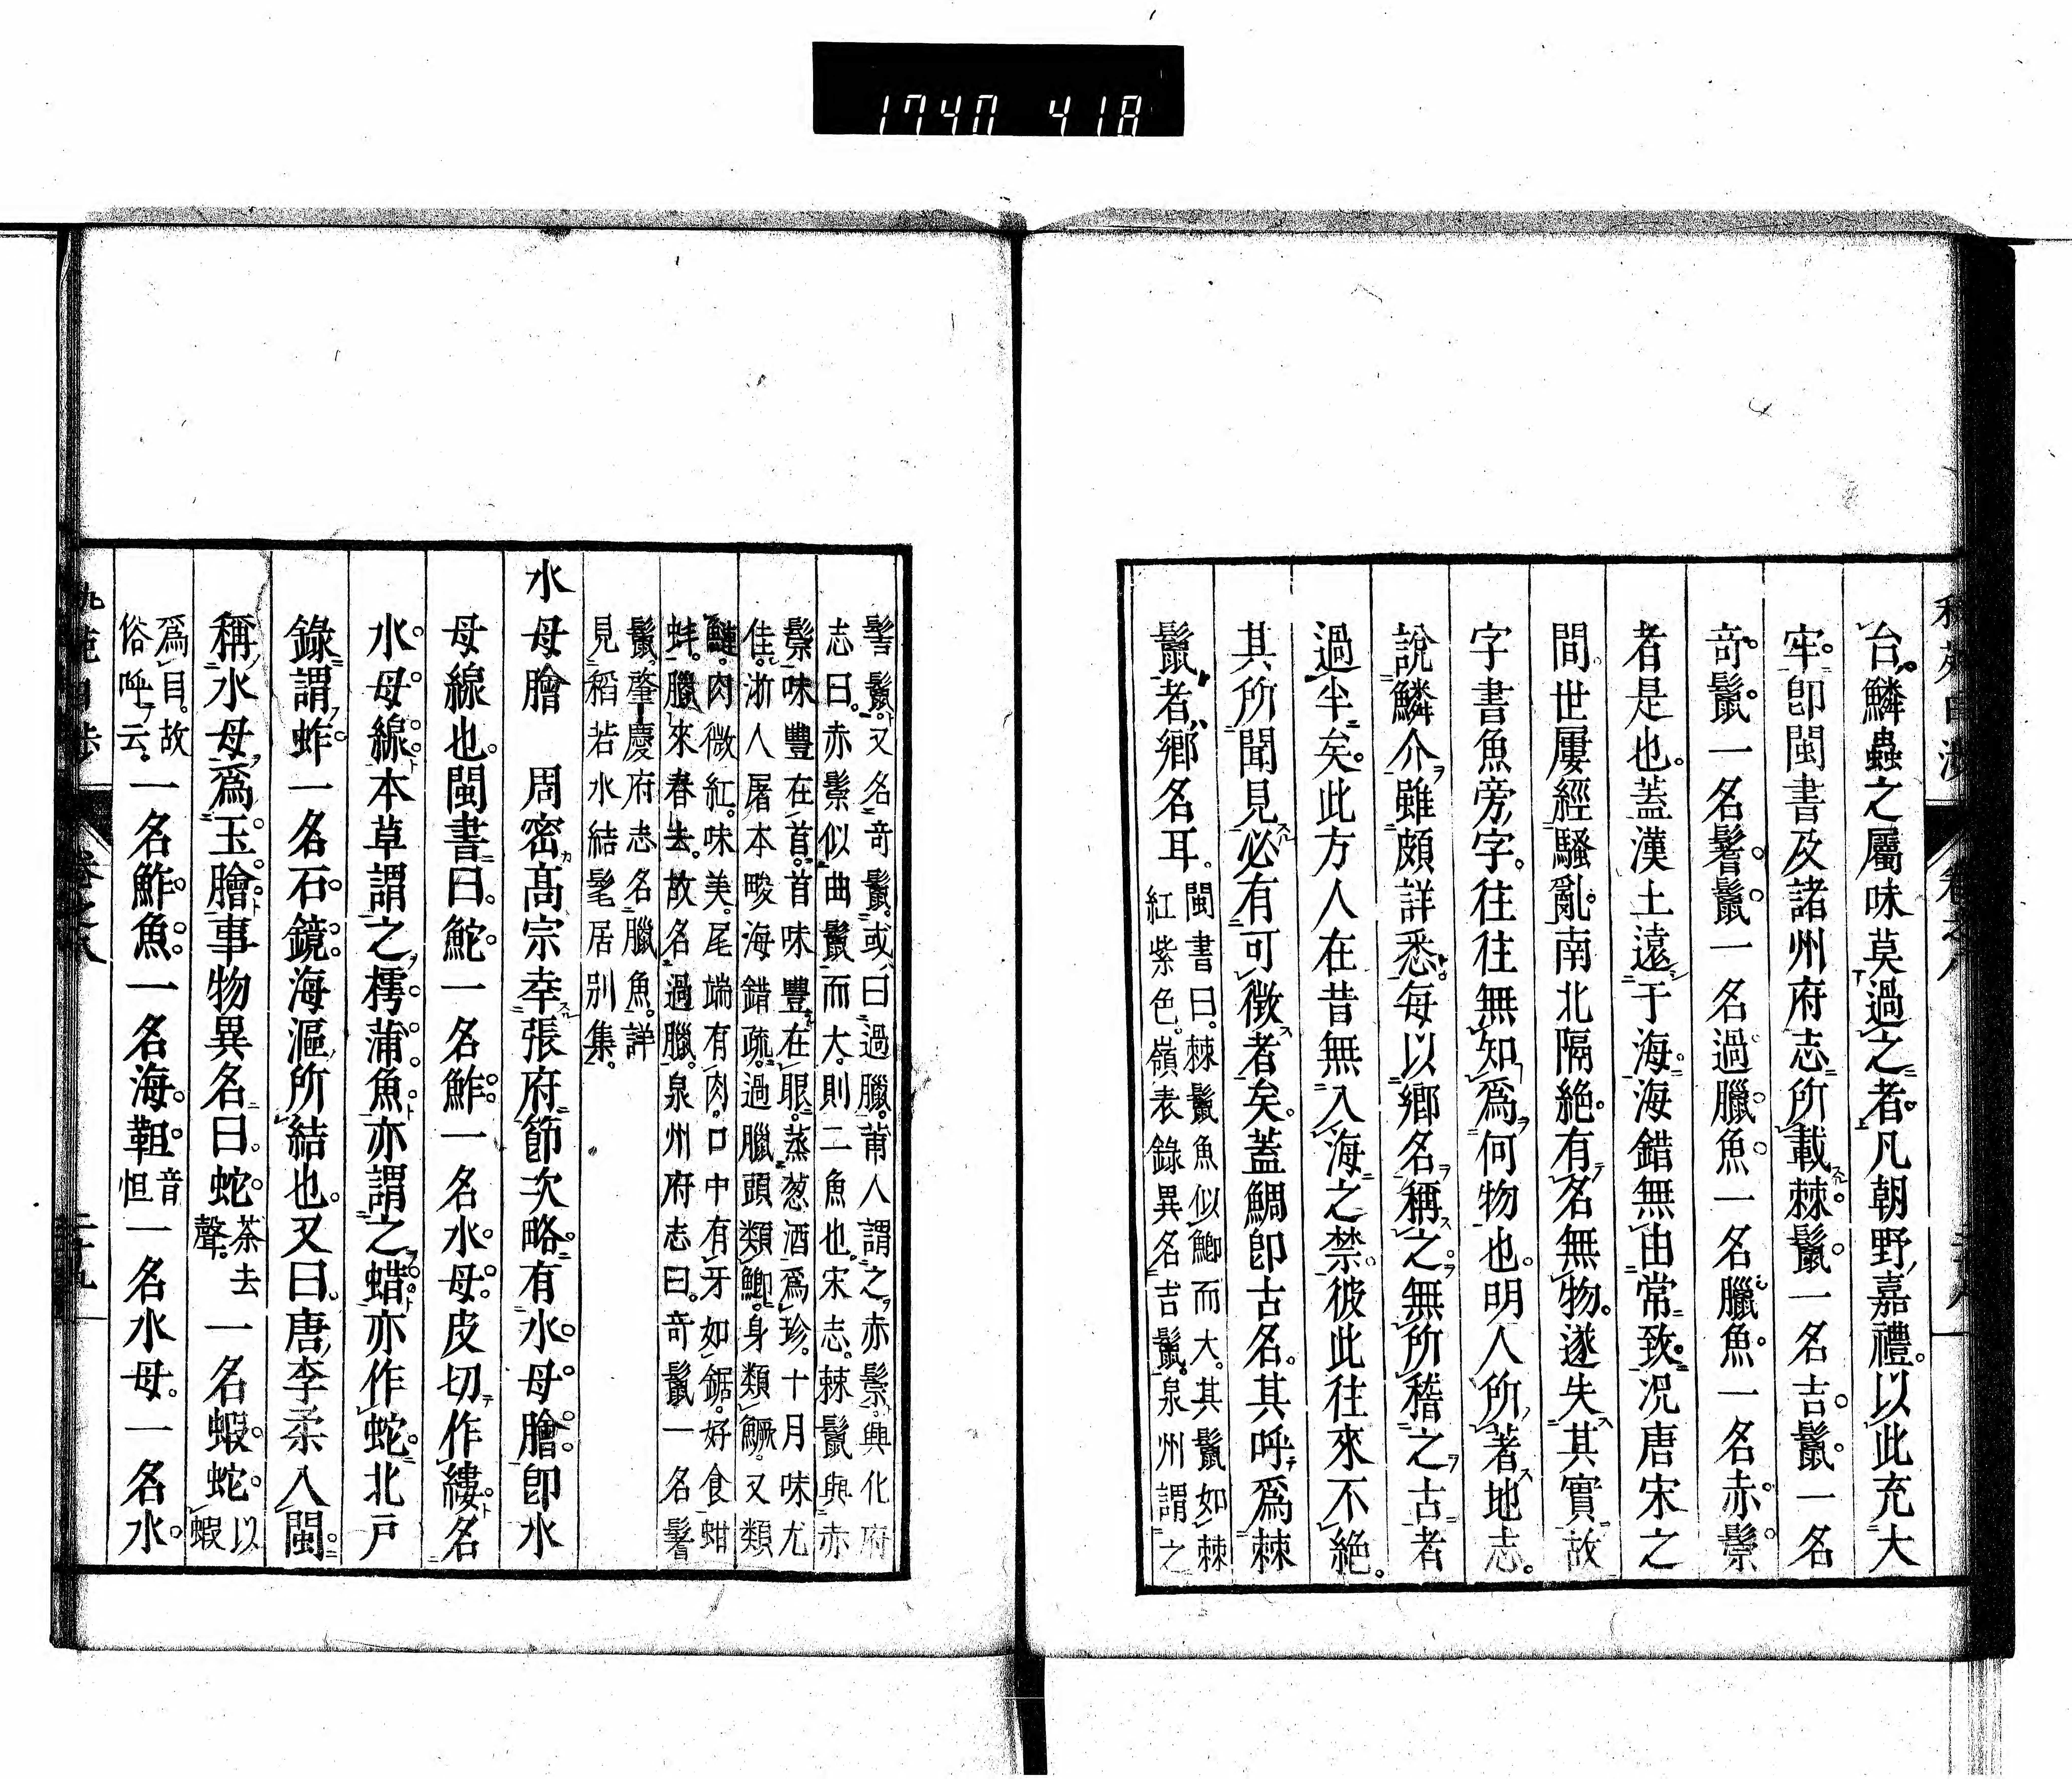 1740 418
台鱗蟲之屬味莫過之者凡朝野嘉禮以此充大
牢卽閩書及諸州府志所載棘鬛一名吉鬛一名
奇鬛一名髻鬛一名過臘魚一名臘魚一名赤鬃
者是也蓋漢土遠于海海錯無由常致況唐宋之
問世屢經騷亂南北隔絶有名無物遂失其實故
字書魚旁字往往無知爲何物也明人所著地志
說鱗介雖頗詳悉每以鄉名稱之無所稽之古者
過半矣此方人在昔無入海之禁彼此往來不絶
其所聞見必有可徵者矣蓋鯛卽古名其呼爲棘
鬛者鄉名耳閩書曰棘鬛魚似鯽而大其鬛如棘
紅紫色嶺表錄異名吉鬛泉州謂之
髻鬛又名奇鬛或曰過臘莆人謂之赤鬃興化府
志曰赤鬃似曲鬛而大則二魚也宋志棘鬛與赤
鬃味豐在首首味豐在眼蒸葱酒爲珍十月味尤
佳浙人屠本畯海錯疏過臘頭類鯽身類鱖又類
鰱肉微紅味美尾端有肉口中有牙如鋸好食蚶
蚌臘來春去故名過臘泉州府志曰奇鬛一名髻
鬛肇慶府志名臘魚詳
見稻若水結髦居別集
水母膾　周密高宗幸張府節次略有水母膾卽水
母線也閩書曰鮀一名鮓一名水母皮切作縷名
水母線本草謂之樗蒲魚亦謂之蜡亦作蛇北戸
錄謂蚱一名石鏡海漚所結也又曰唐李柔入閩
稱水母爲玉膾事物異名曰蛇茶去聲一名蝦蛇以蝦
爲目故俗呼云一名鮓魚一名海䩢音怛一名水母一名水
卷之八